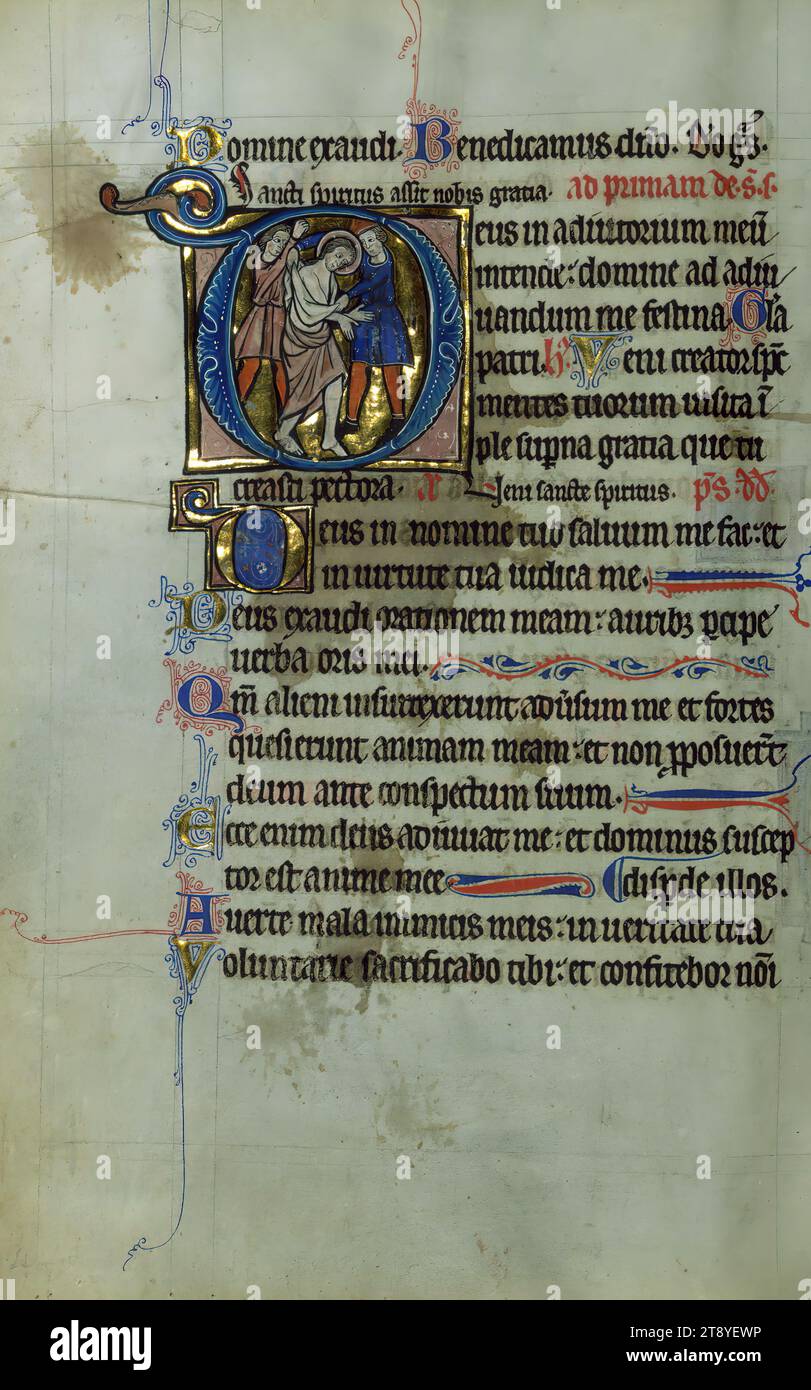 Domine exaudi. Benedicamus dño. Deo gr̃.
Sancti spiritus assit nobis gratia. ad primam de. s̃. s.
Deus in adiutorium meũ
intende: domine ad adiu
uandum me festina. Gl̃a
patri. h. Veni creator sp̃c
mentes tuorum uisita ĩ
ple sup̃na gratia que tu
creasti pectora. a Veni sancte spiritus. p̃s. dd̃.
Deus in nomine tuo saluum me fac: et
in uirtute tua iudica me.
Deus exaudi orationem meam: auribꝫ ꝑcipe
uerba oris mei.
Qm̃ alieni insurrexerunt aduersum me et fortes
quesierunt animam meam: et non ꝓposuer̃t
deum ante conspectum suum.
Ecce enim deus adiuuat me: et dominus suscep
tor est anime mee disꝑde illos.
Auerte mala inimicis meis: in ueritate tua
Voluntarie sacrificabo tibi: et confitebor nõi
alamy
Image ID: 2T8YEWP
www.alamy.com